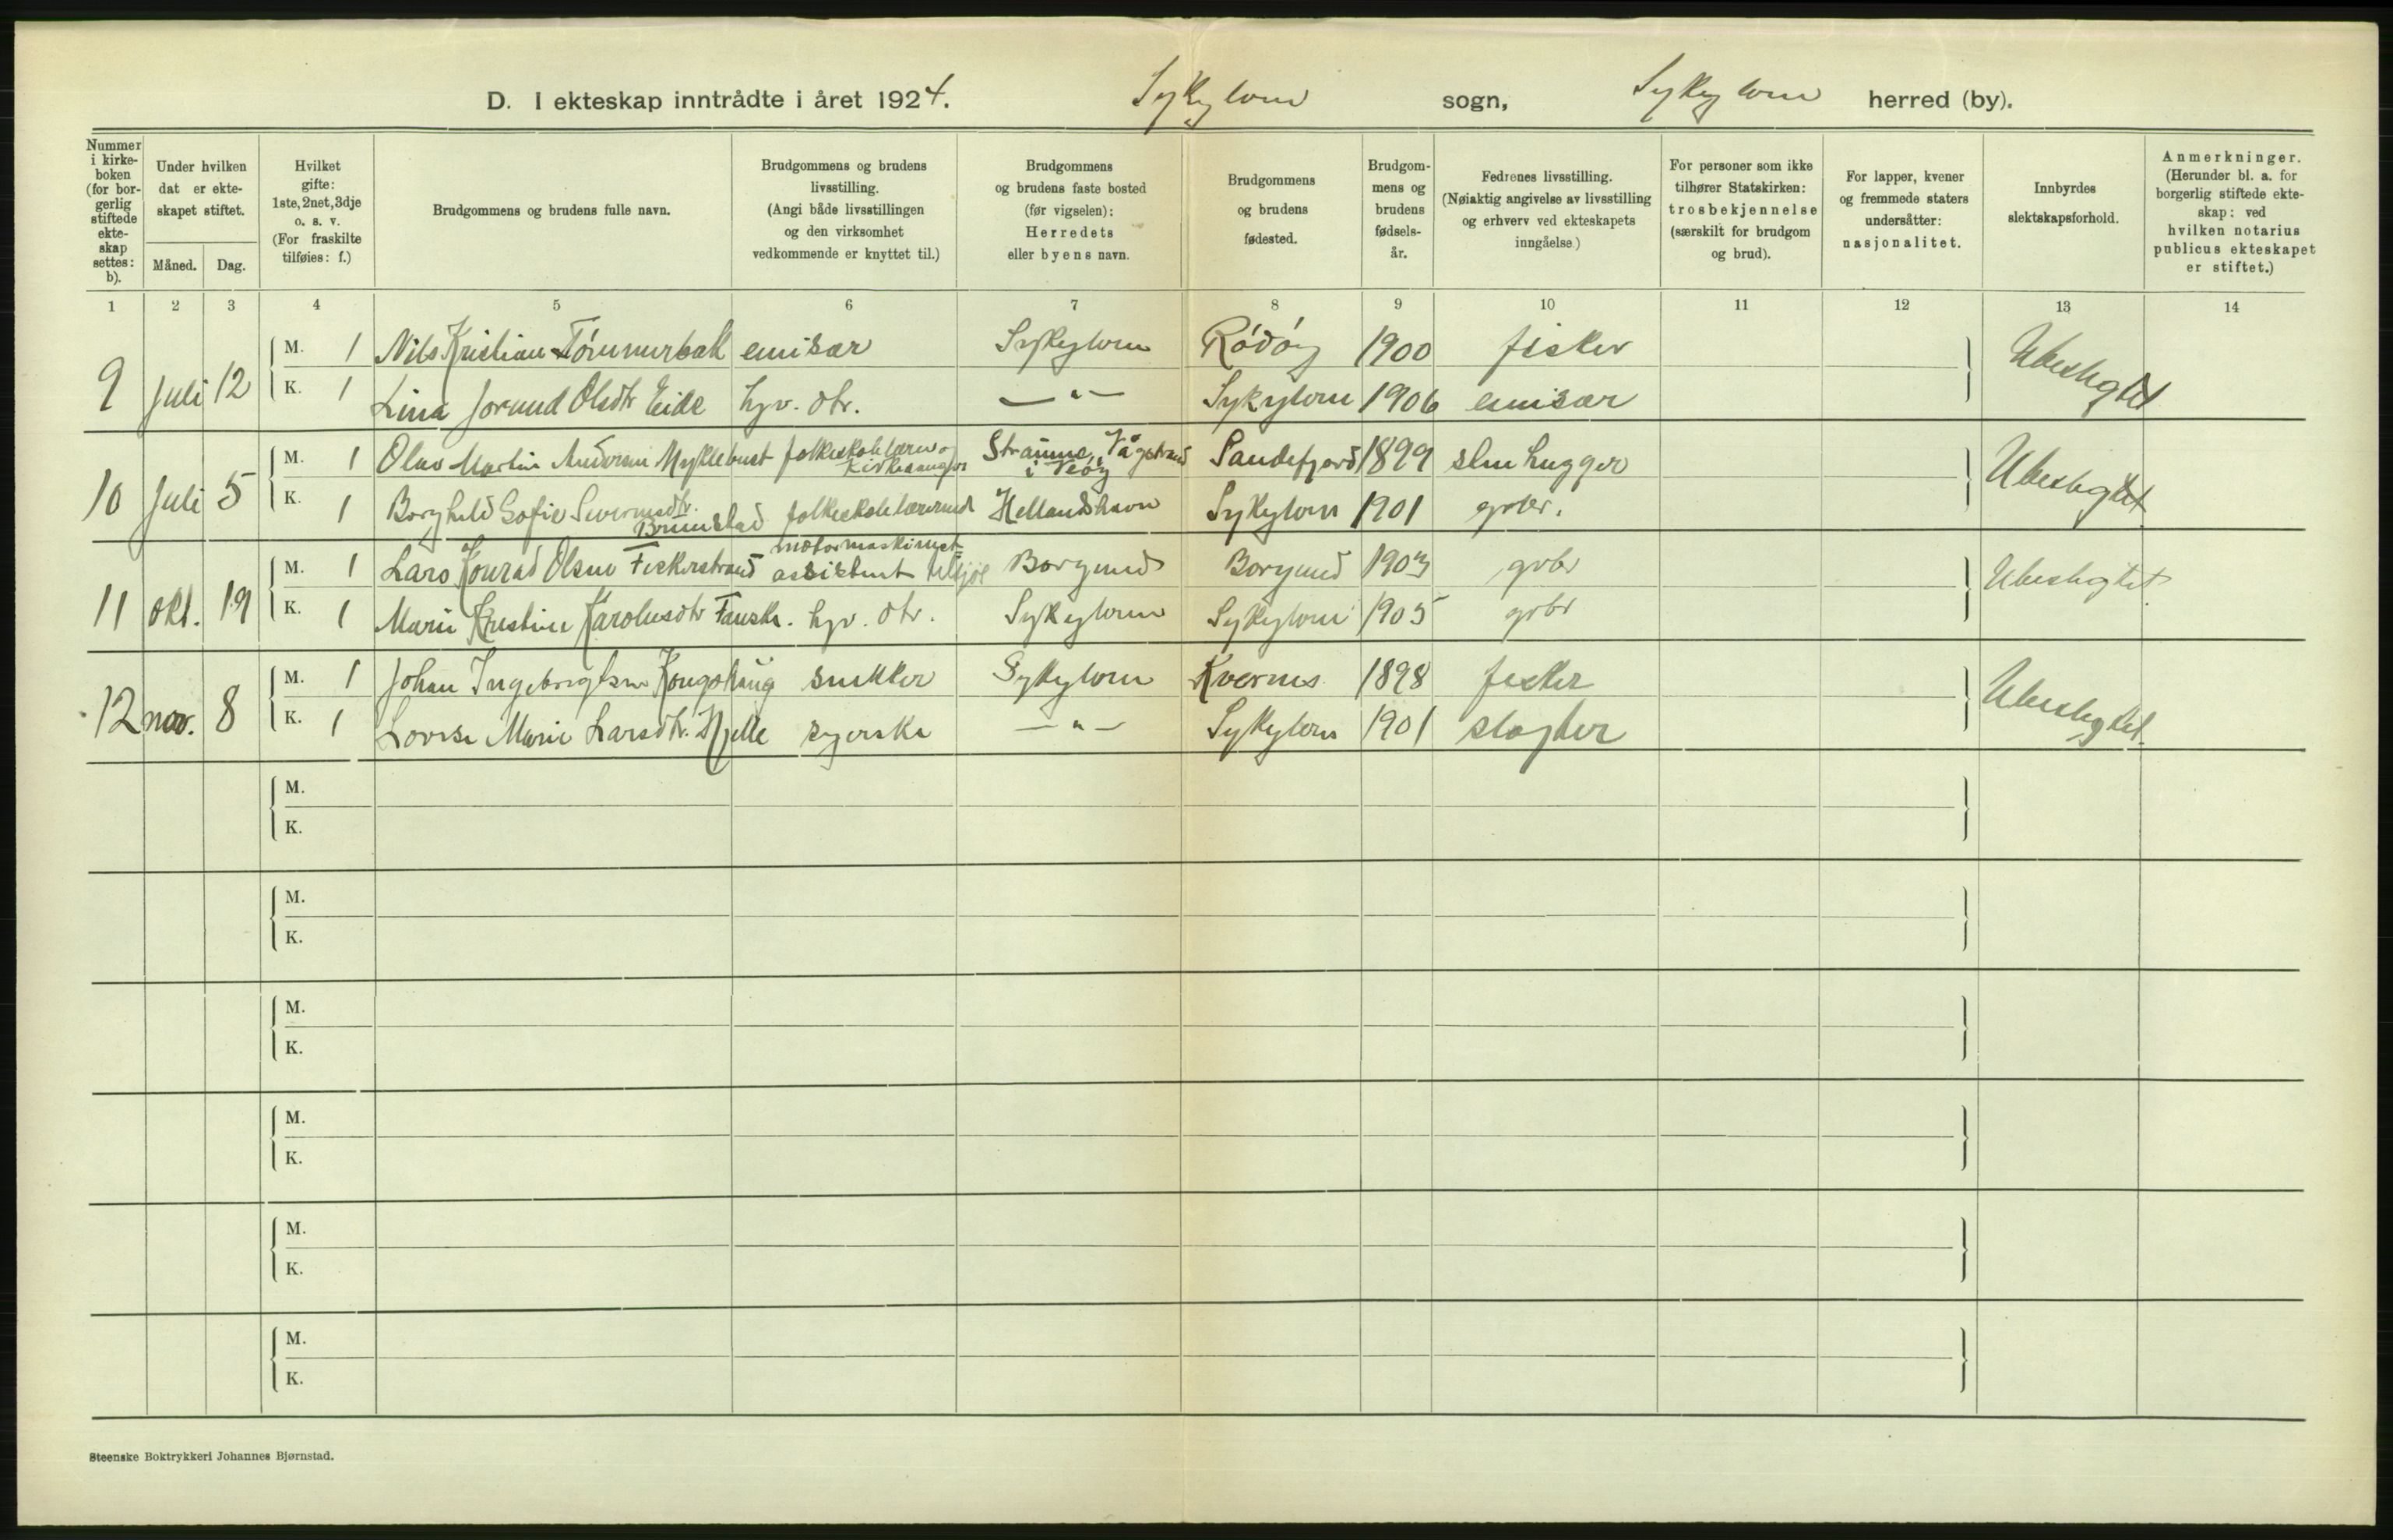 D. I ekteskap inntrådte i året 1924. Sykylven sogn, Sykylven herred (by).
Nummer i kirkeboken (for borgerlig stiftede ekteskap settes: b).
Under hvilken dat er ekteskapet stiftet.
Måned. Dag.
Hvilket gifte: 1ste, 2net, 3dje o. s. v. (For fraskilte tilføies: f.)
Brudgommens og brudens fulle navn.
Brudgommens og brudens livsstilling. (Angi både livsstillingen og den virksomhet vedkommende er knyttet til.)
Brudgommens og brudens faste bosted (før vigselen): Herredets eller byens navn.
Brudgommens og brudens fødested.
Brudgommens og brudens fødselsår.
Fedrenes livsstilling. (Nøiaktig angivelse av livsstilling og erhverv ved ekteskapets inngåelse)
For personer som ikke tilhører Statskirken: trosbekjennelse (særskilt for brudgom og brud).
For lapper, kvener og fremmede staters undersåtter: nasjonalitet.
Innbyrdes slektskapsforhold.
Anmerkninger. (Herunder bl. a. for borgerlig stiftede ekteskap: ved hvilken notarius publicus ekteskapet er stiftet.)
1 2 3 4 5 6 7 8 9 10 11 12 13 14
M. 1 Nils Kristian Tómmerbak emisær Sykylven Ródóy 1900 fisker
9 juli 12 Ubeslegtet
K. 1 Lina Jorund Olsdtr Eide hjv. dtr. —"— Sykylven 1906 emisær
M. 1 Olav Martin Andersen Myklebust folkeskolelærer og kirkesanger Stranne, Vågstrand i Veóy Sandefjord 1899 stenhugger
10 juli 5 Ubeslegtet
K. 1 Borghild Sofie Severinsdtr. Brunstad folkeskolelærerinde Hellandshavn Sykylven 1901 grbr.
M. 1 Lars Konrad Olsen Fiskerstrand motormaskinist assistent tilsjós Borgund Borgund 1903 grbr
11 okt. 19 Ubeslegtet.
K. 1 Marie Kristine Karolusdtr Fauske. hjv. dtr. Sykylven Sykylven 1905 grbr
M. 1 Johan Ingebrigtsen Kongshaug snekker Sykylven Kvernes 1898 fisker
12 nov. 8 Ubeslegtet.
K. 1 Lovise Marie Larsdtr. Hjelle syerske —"— Sykylven 1901 slagter
M.
K.
M.
K.
M.
K.
M.
K.
M.
K.
M.
K.
Steenske Boktrykkeri Johannes Bjørnstad.